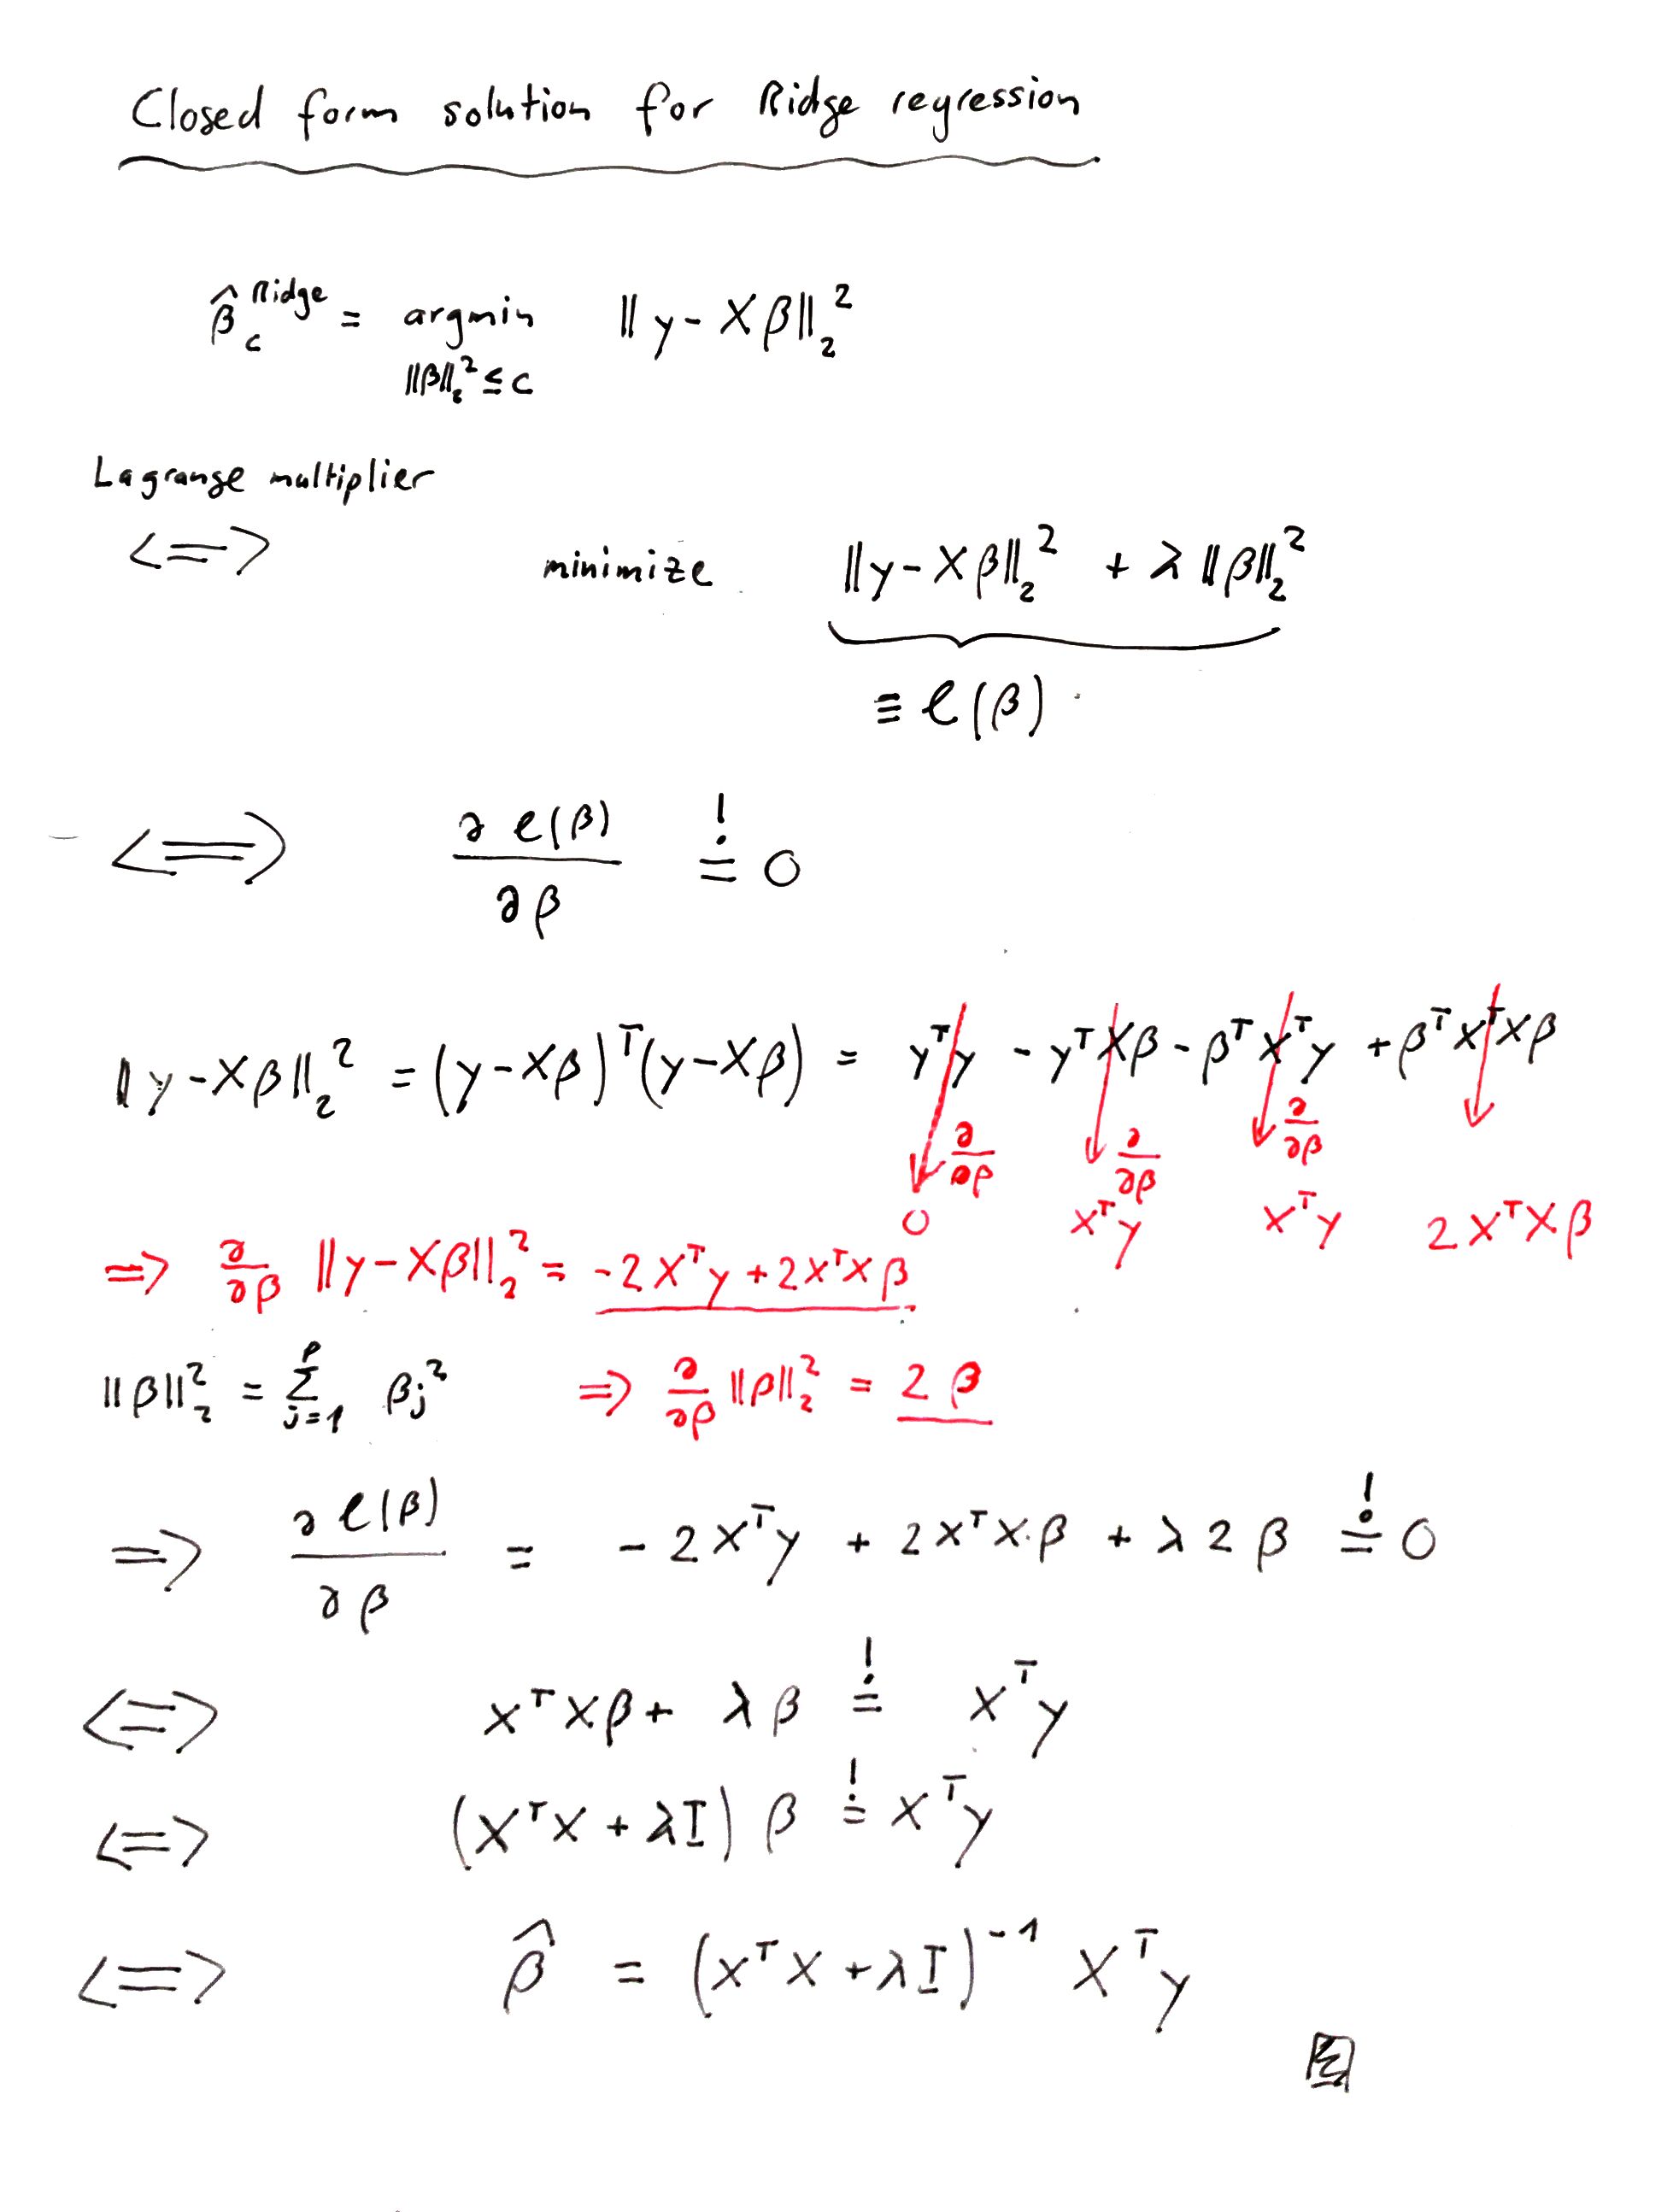 Closed form solution for Ridge regression
β̂_c^Ridge = argmin_{‖β‖₂² ≤ c} ‖y - Xβ‖₂²
Lagrange multiplier
<=> minimize ‖y - Xβ‖₂² + λ‖β‖₂²
≡ ℓ(β)
<=> ∂ℓ(β)/∂β =! 0
‖y - Xβ‖₂² = (y - Xβ)ᵀ(y - Xβ) = yᵀy - yᵀXβ - βᵀXᵀy + βᵀXᵀXβ
∂/∂β ∂/∂β ∂/∂β
0 Xᵀy Xᵀy 2XᵀXβ
=> ∂/∂β ‖y - Xβ‖₂² = -2Xᵀy + 2XᵀXβ
‖β‖₂² = Σ_{j=1}^p βj² => ∂/∂β ‖β‖₂² = 2β
=> ∂ℓ(β)/∂β = -2Xᵀy + 2XᵀXβ + λ2β =! 0
<=> XᵀXβ + λβ =! Xᵀy
<=> (XᵀX + λI)β =! Xᵀy
<=> β̂ = (XᵀX + λI)⁻¹ Xᵀy